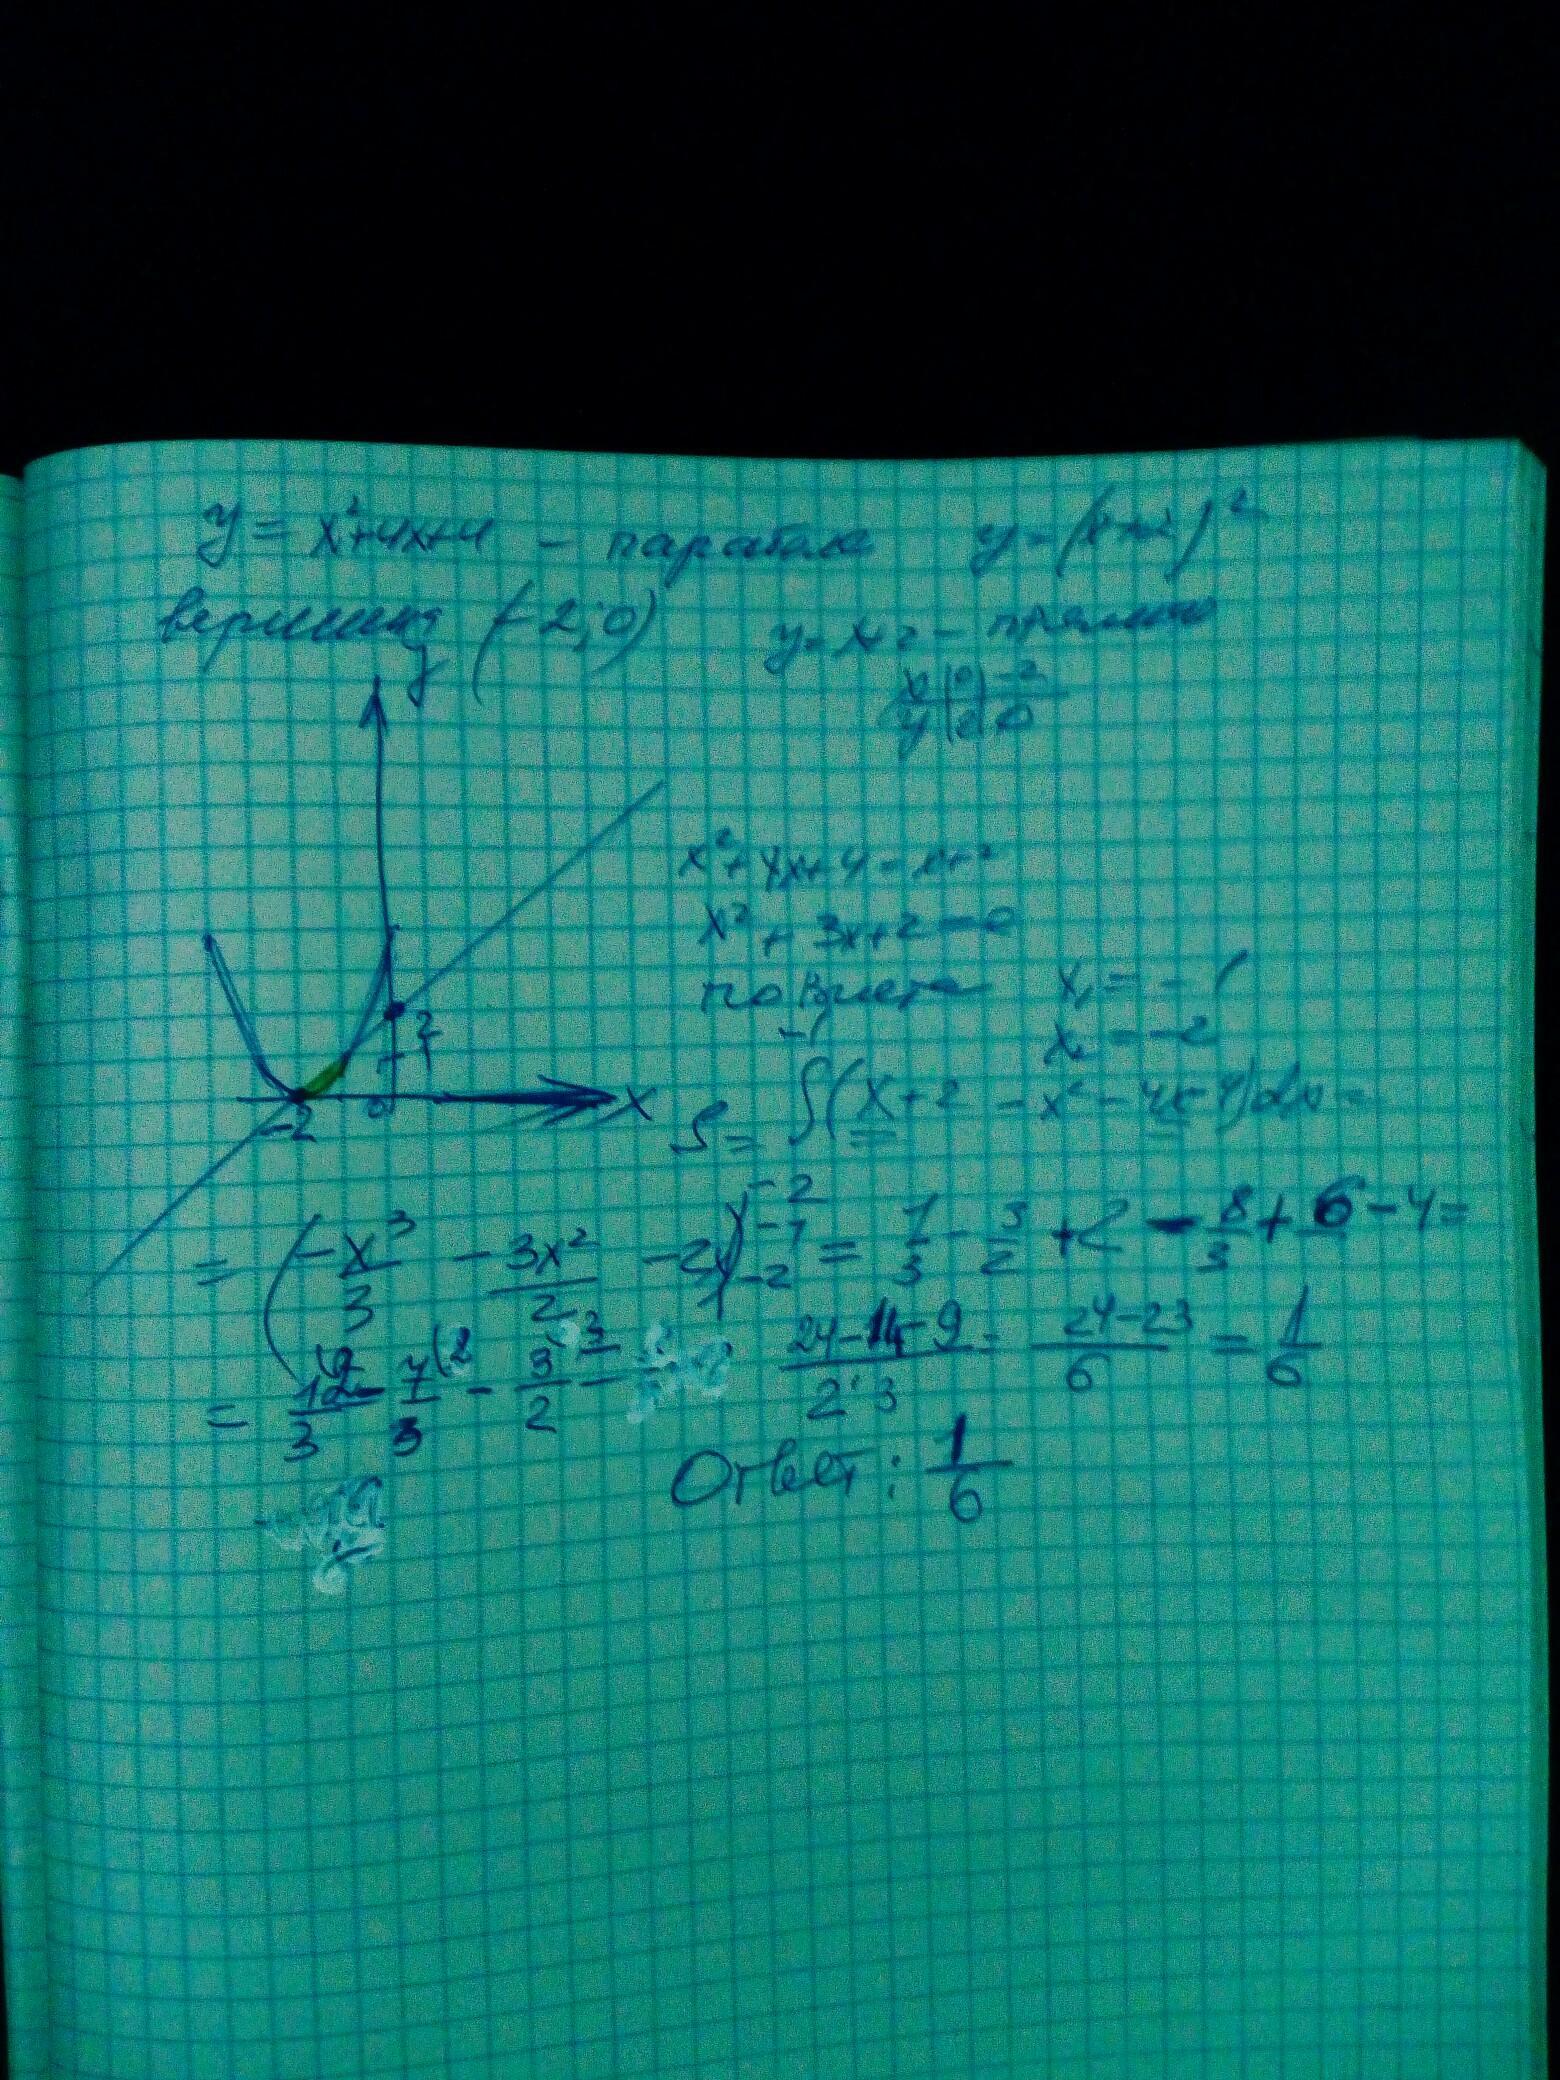 y = x²+4x+4 – парабола y=(x+2)²
вершина (-2;0) y=x+2 – прямая
x | 0 | -2
y | 2 | 0
y
x²+4x+4=x+2
x²+3x+2=0
по Виета x₁=-1
x₂=-2
2
1
-2 0 x
-1
S = ∫(x+2-x²-4x-4)dx=
-2
= (-x³/3 - 3x²/2 -2x)|-1 -2 = 1/3 - 3/2 +2 - 8/3 + 6 - 4 =
= 12/3 - 7/3 - 3/2 = (24-14-9)/(2·3) = (24-23)/6 = 1/6
Ответ: 1/6